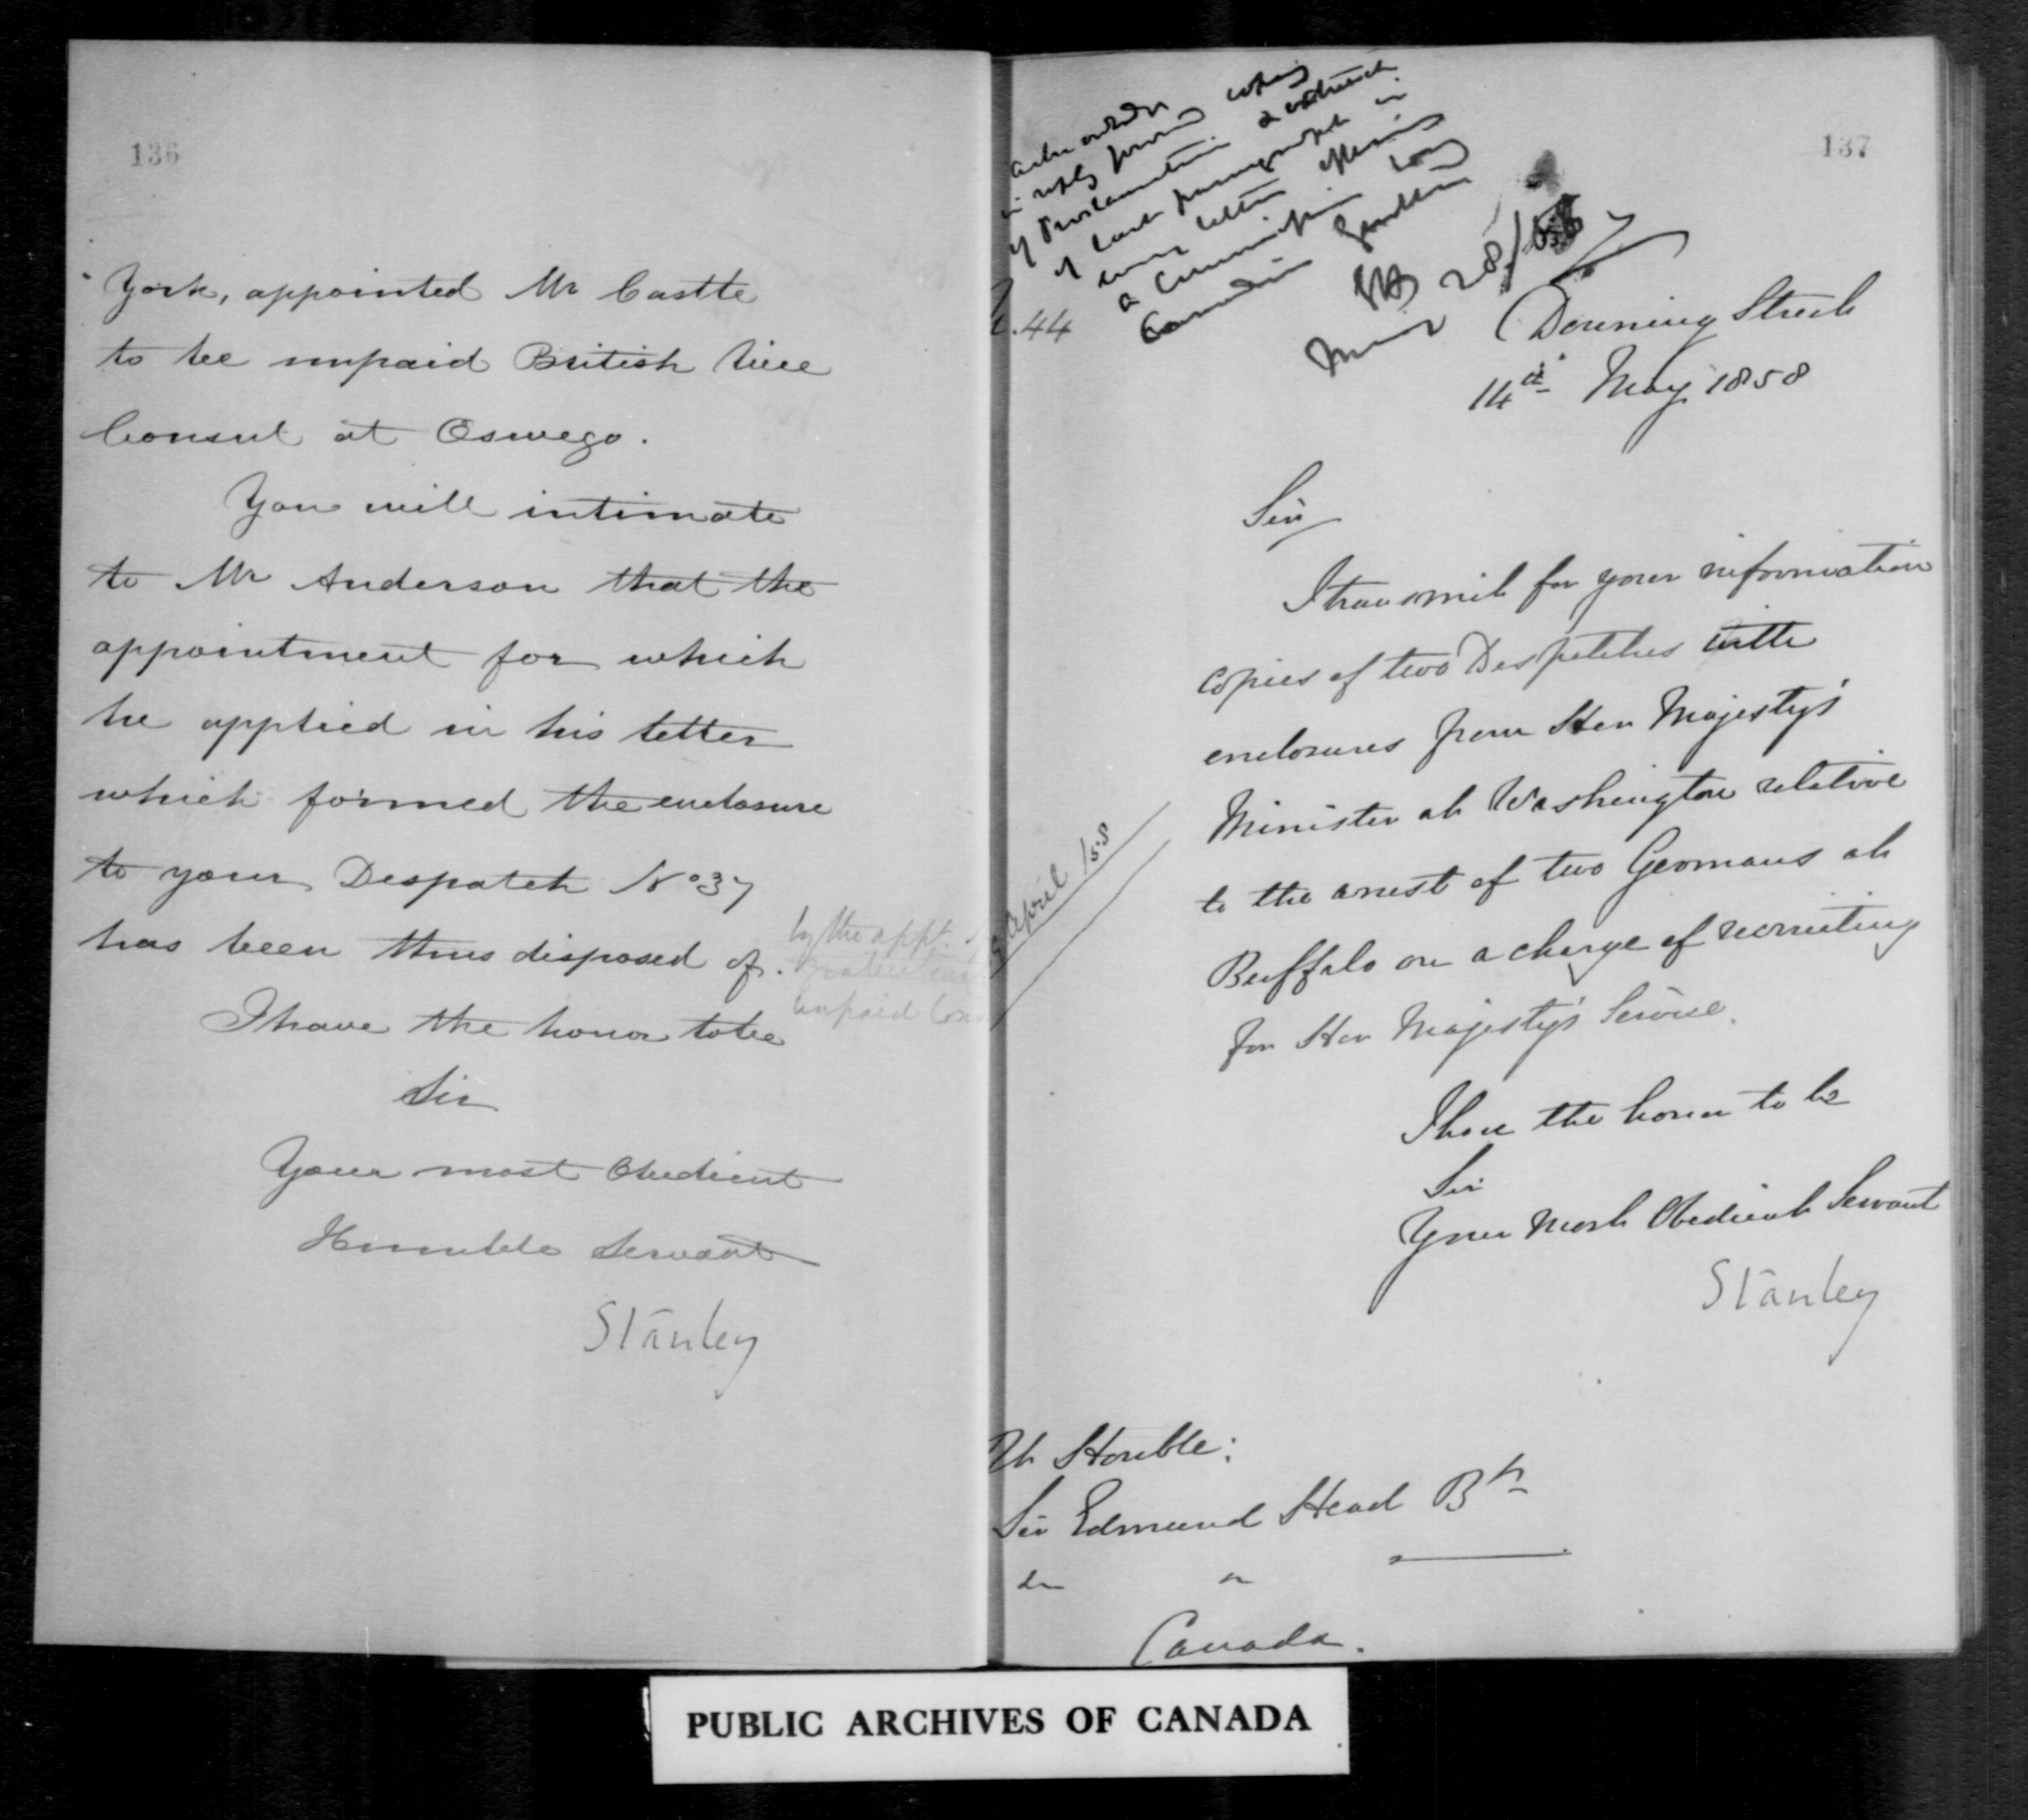 136
York, appointed Mr Castle
to be unpaid British Vice
Consul at Oswego.
You will intimate
to Mr Anderson that the
appointment for which
he applied in his letter
which formed the enclosure
to your Despatch No 37
has been thus disposed of.
by the appt.
unpaid Con
I have the honor to be
Sir
Your most Obedient
Humble Servant
Stanley
137
in reply
of Proclamation & extract
of last paragraph in
letter offering
a Commission
Canadian
28/58
.44
Downing Street
14th May 1858
Sir
I transmit for your information
copies of two Despatches with
enclosures from Her Majesty's
Minister at Washington relative
April /58
to the arrest of two Germans at
Buffalo on a charge of recruiting
for Her Majesty's Service.
I have the honor to be
Sir
Your Most Obedient Servant
Stanley
Rt Honble:
Sir Edmund Head Bt
Canada.
PUBLIC ARCHIVES OF CANADA